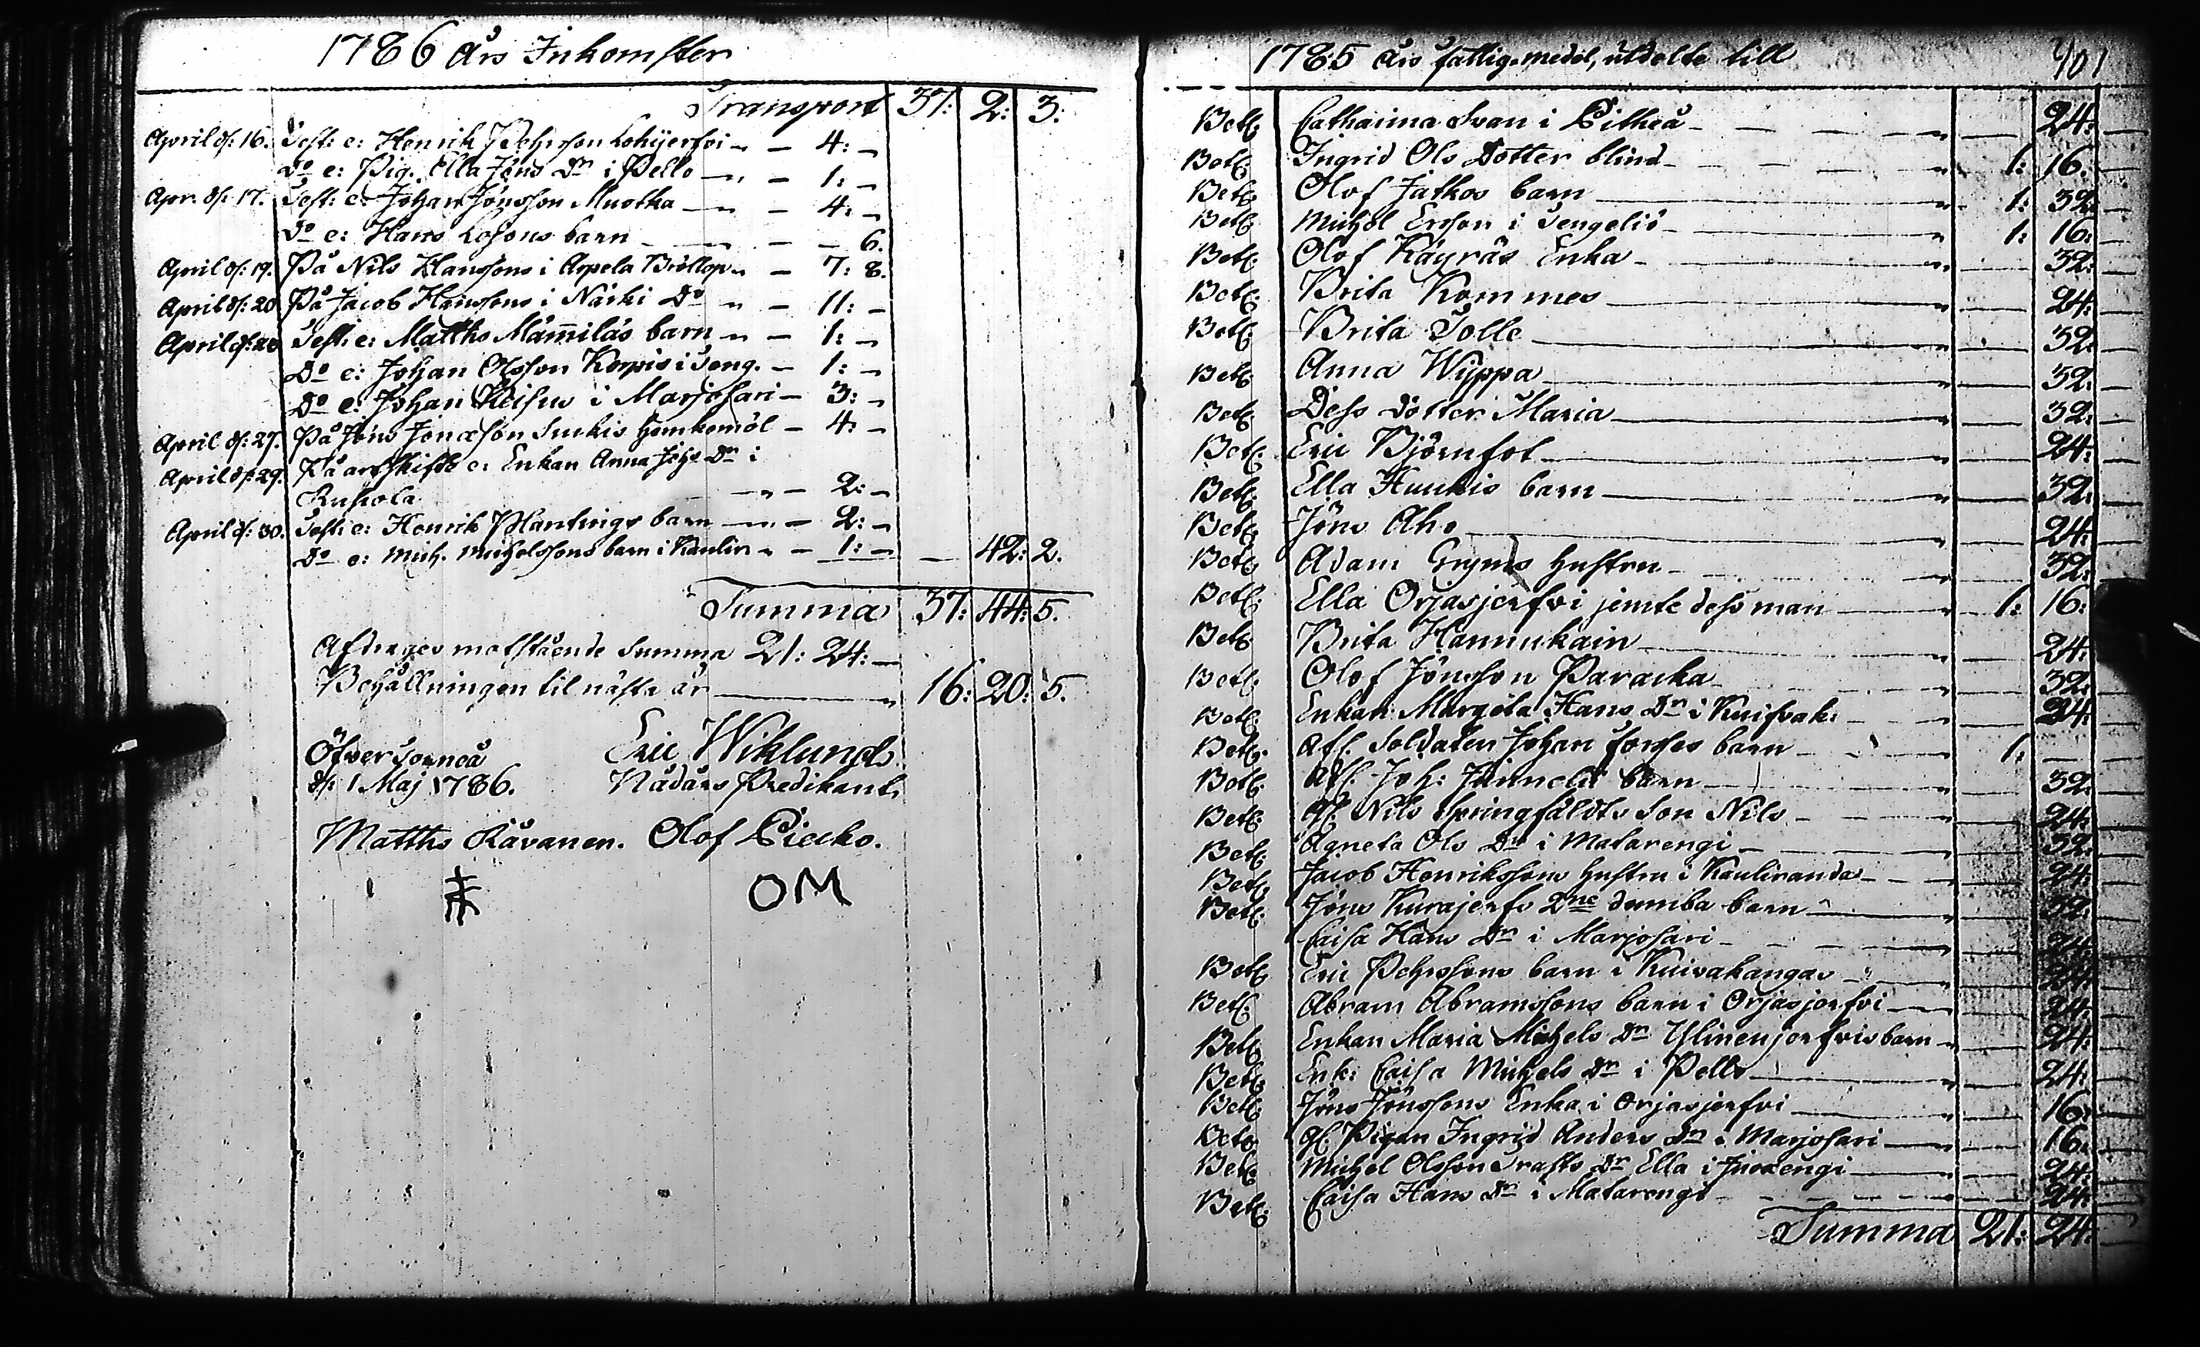 1786 års Inkomster
Transport 37: 2: 3.
April d: 16. Test: e: Henrik Pehrsson Lohijerfvi 4: -
Do e: Pig. Ella Jöns Dr i Pello 1: -
Apr. d: 17. Test: e: Johan Jönsson Muotka 4: -
Do e: Hans barn 6.
April d: 19. På Nils Hanssons i Arpela Bröllop 7: 8.
April d: 20 På Jacob Hanssons i Närki Do 11: -
April d: Test: e: Matths Mämmiläs barn 1: -
Do e: Johan Olsson Korpis i Teng. 1: -
Do e: Johan Keisus i Marjosari 3: -
April d: 27. På Jöns Jonasson hemkomöl 4: -
April d: 29. På arfskifte e: Enkan Anna Joh: Dr i
Ruskola 2: -
April d: 30. Test: e: Henrik Plantings barn 2: -
Do e: Mich. Michelssons barn i Kaulir 1: - 42: 2.
Summa 37: 44: 5.
Afdrages motstående Summa 21: 24: -
Behållningen til nästa år 16: 20: 5.
Öfver Torneå
d: 1 Maj 1786.
Eric Wiklund.
Nådårs Predikant.
Matths Råvanen. Olof Piecko.
OM
1785 års fattig-medel, utdelte till
401
Bet. Catharina Svan i Pitheå 24:
Bet. Ingrid Ols Dotter blind 1: 16.
Bet. Olof Jatkos barn 1: 32:
Bet. Michel Ersson i Tengeliö 1: 16:
Bet. Olof Käyräs Enka 32:
Bet. Brita Kommes 24:
Bet. Brita Tolle 32:
Bet. Anna Wyppa 32:
Bet. Dess dotter Maria 32:
Bet. Eric Björnfot 24:
Bet. Ella Huukis barn 32:
Bet. Jöns Aho 24:
Bet. Adam Gryms hustru 32:
Bet. Ella Orjasjerfvi jemte dess man 1: 16:
Bet. Brita Hannukain 24:
Bet. Olof Jönsson Paracka 32:
Bet. Enkan Margeta Hans Dr i Kuifvak: 24:
Bet. Afl. Soldaten Johan barn 1:
Bet. Afl. Joh: barn 32:
Bet. Afl. Nils Springfäldts Son Nils 24:
Bet. Agneta Ols Dr i Matarengi 32:
Bet. Jacob Henrikssons hustru i Kauliranda 24:
Bet. Jöns Kurajerfv 2ne dumba barn 32:
Caisa Hans Dr i Marjosari 24:
Bet. Eric Pehrssons barn i Kuivakangas 24:
Bet. Abram Abramssons barn i Orjasjerfvi 24:
Bet. Enkan Maria Michels Dr Ylinenjerfvis barn 24:
Bet. Enk: Caisa Michels Dr i Pello 24:
Bet. Jöns Jönssons Enka i Orjasjerfvi 16:
Bet. Afl. Pigan Ingrid Anders Dr i Marjosari 16:
Bet. Michel Olsson Trasts Dr Ella i Juoxengi 24:
Bet. Caisa Hans Dr i Matarengi 24:
Summa 21: 24: